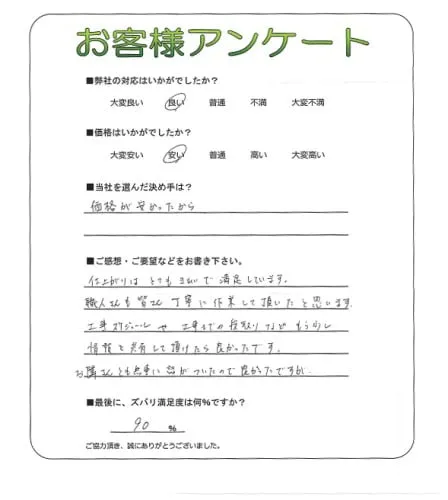 お客様アンケート
■弊社の対応はいかがでしたか？
大変良い 良い 普通 不満 大変不満
■価格はいかがでしたか？
大変安い 安い 普通 高い 大変高い
■当社を選んだ決め手は？
価格が安かったから
■ご感想・ご要望などをお書き下さい。
仕上がりは とても きれいで 満足しています。
職人さんも 皆さん 丁寧に 作業して頂いたと思います
工事スケジュールや 工事での段取りなど もう少し
情報を共有して頂けたら良かったです。
お隣さんとも無事に話がついたので良かったですが、
■最後に、ズバリ満足度は何%ですか？
90 %
ご協力頂き、誠にありがとうございました。